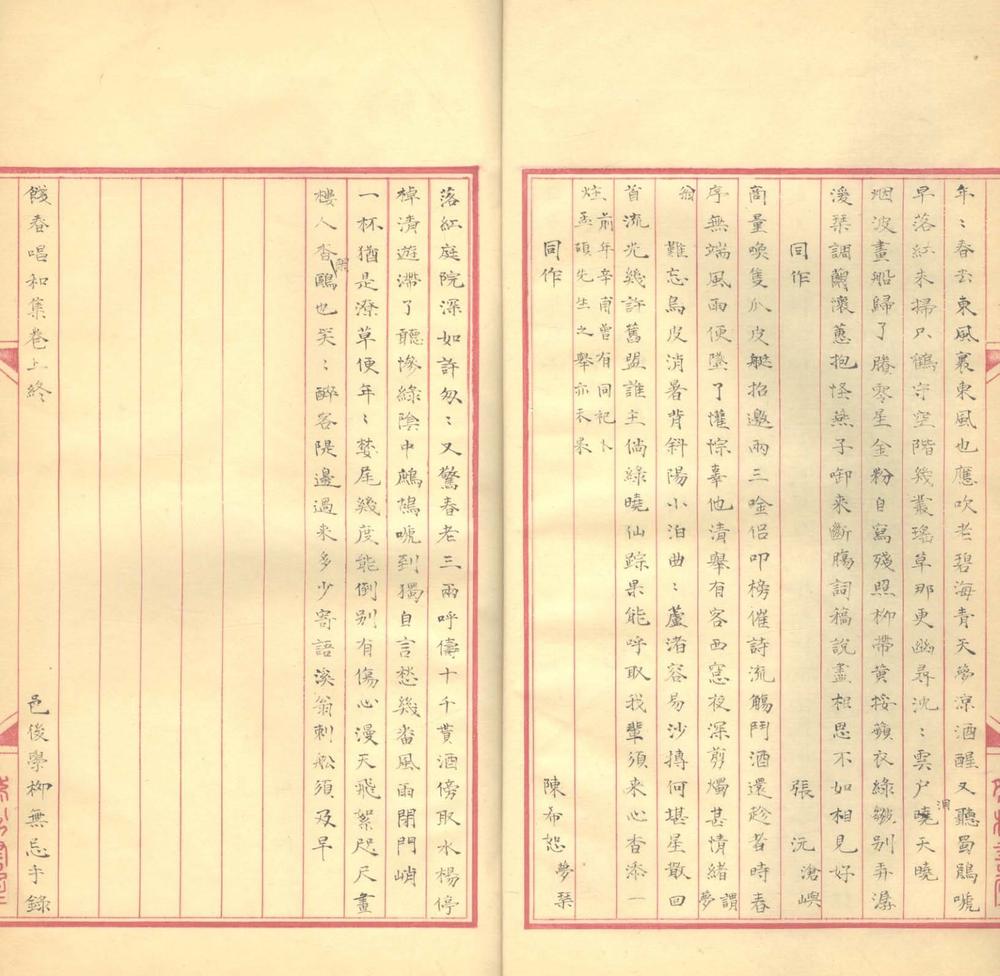 年〻春去東風裏東風也應吹老碧海青天夢凉酒醒又聽蜀鵑嗁
早落紅未掃只鶴守空階幾叢瑤草那更幽尋沈〻雲戶曉天曉
洞
烟波畫船歸了賸零星金粉自寫殘照柳帶黃挼蘋衣綠皺別弄潺
湲琴調蘭懷蕙抱怪燕子啣来斷腸詞稿說盡相思不如相見好
同作 張沅滄嶼
商量喚隻爪皮艇招邀兩三唫侣叩榜催詩流觴鬥酒還趁者時春
序無端風雨便墜了懽悰辜他清舉有客西窓夜深剪燭甚情緒謂夢
翁 難忘烏皮消暑背斜陽小泊曲〻蘆渚容易沙摶何堪星散回
首流光幾許舊盟誰主倘綠曉仙踪果能呼取我輩須来心香添一
炷前年辛甫曾有同祀卜
孟碩先生之舉亦未果
同作 陳希恕夢琴
落紅庭院深如許匆〻又驚春老三兩呼儔十千貰酒傍取水楊停
棹清遊滯了聽慘綠陰中鷓鴣嗁到獨自言愁幾畨風雨閉門峭
一杯猶是潦草便年〻婪尾幾度能倒别有傷心漫天飛絮咫尺畫
樓人杳鷗也笑〻醉客隄邊過来多少寄語溪翁刺船須及早
閒
餞春唱和集卷上終 邑後學柳無忌手錄